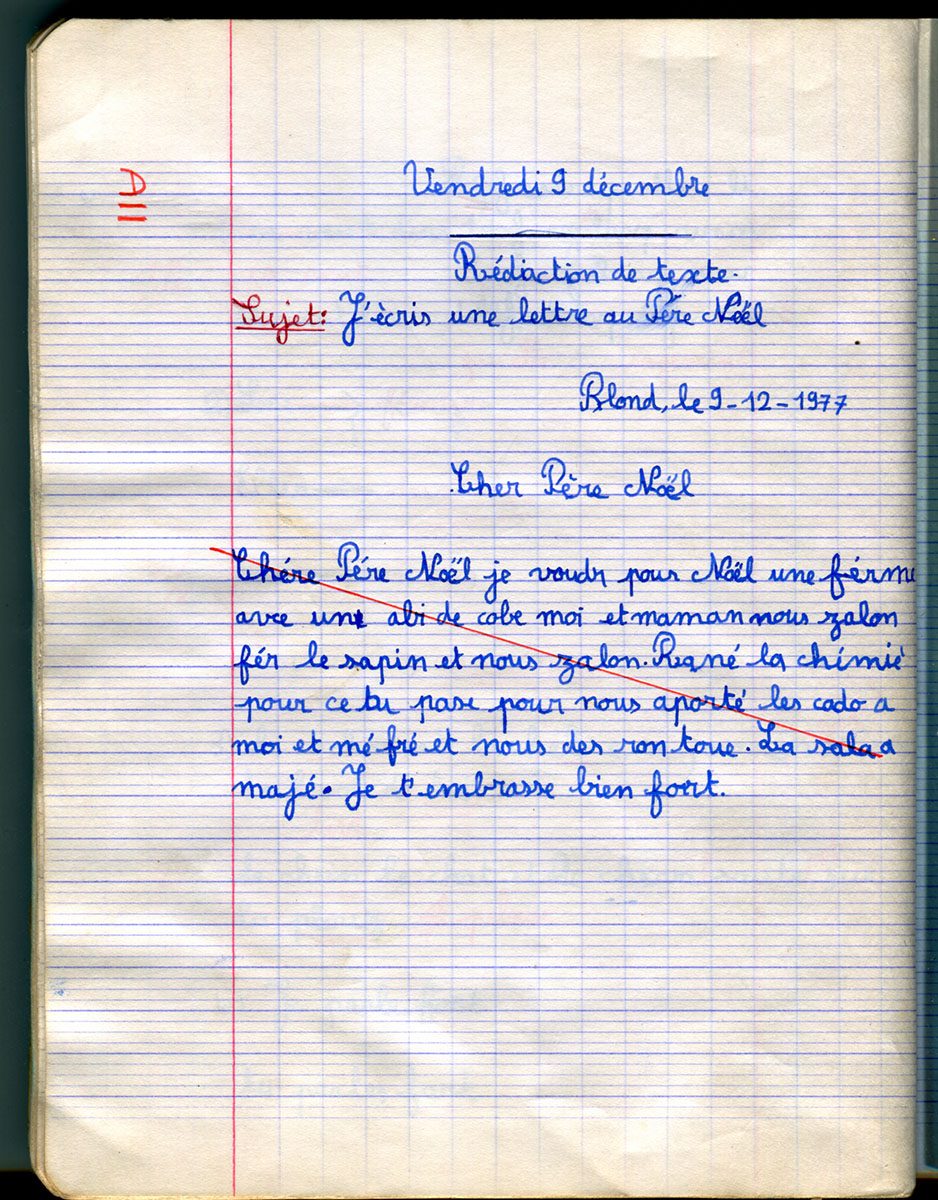 D
Vendredi 9 décembre
Rédaction de texte.
Sujet: J'ècris une lettre au Pére Noël
Blond, le 9-12-1977
Cher Père Noël
Chére Pére Noël je voudr pour Noël une férme
avce une abi de cobe moi et maman nous zalon
fér le sapin et nous zalon. Rané la chimié
pour ce tu pase pour nous aporté les cado a
moi et mé fré et nous des ron toue. La sala a
majé. Je t'embrasse bien fort.